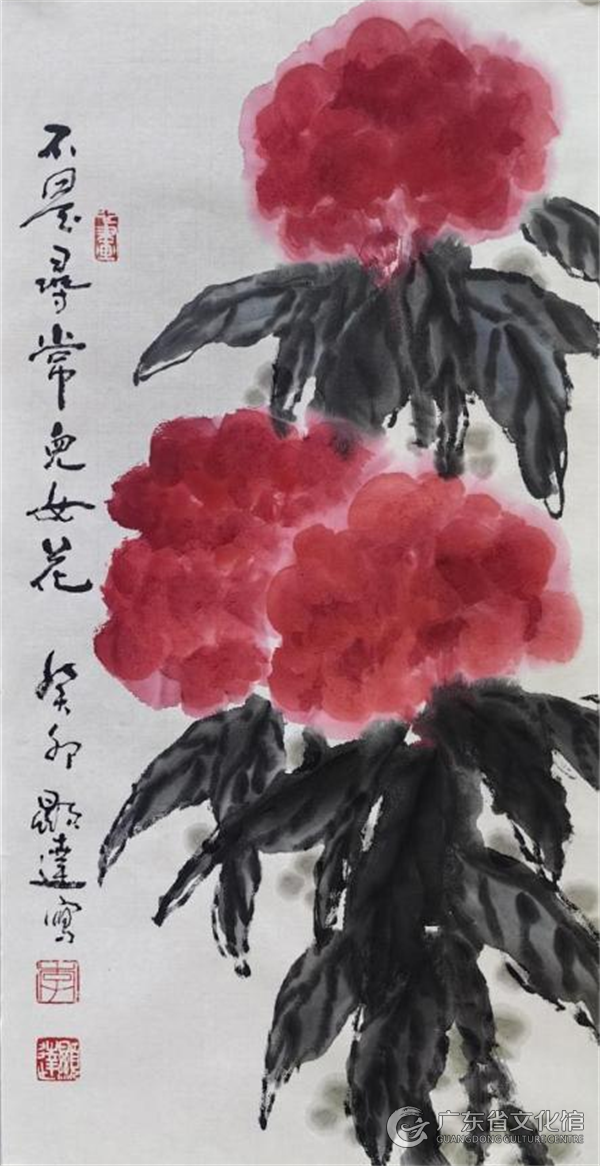 不是尋常兒女花
癸卯 顯達寫
李
顯達
广东省文化馆
GUANGDONG CULTURE CENTRE